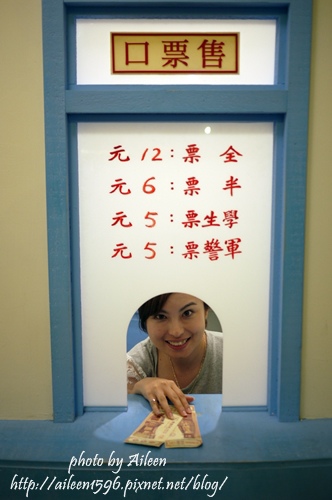 售票口
全票：12元
半票：6元
學生票：5元
軍警票：5元
photo by Aileen
http://aileen1596.pixnet.net/blog/